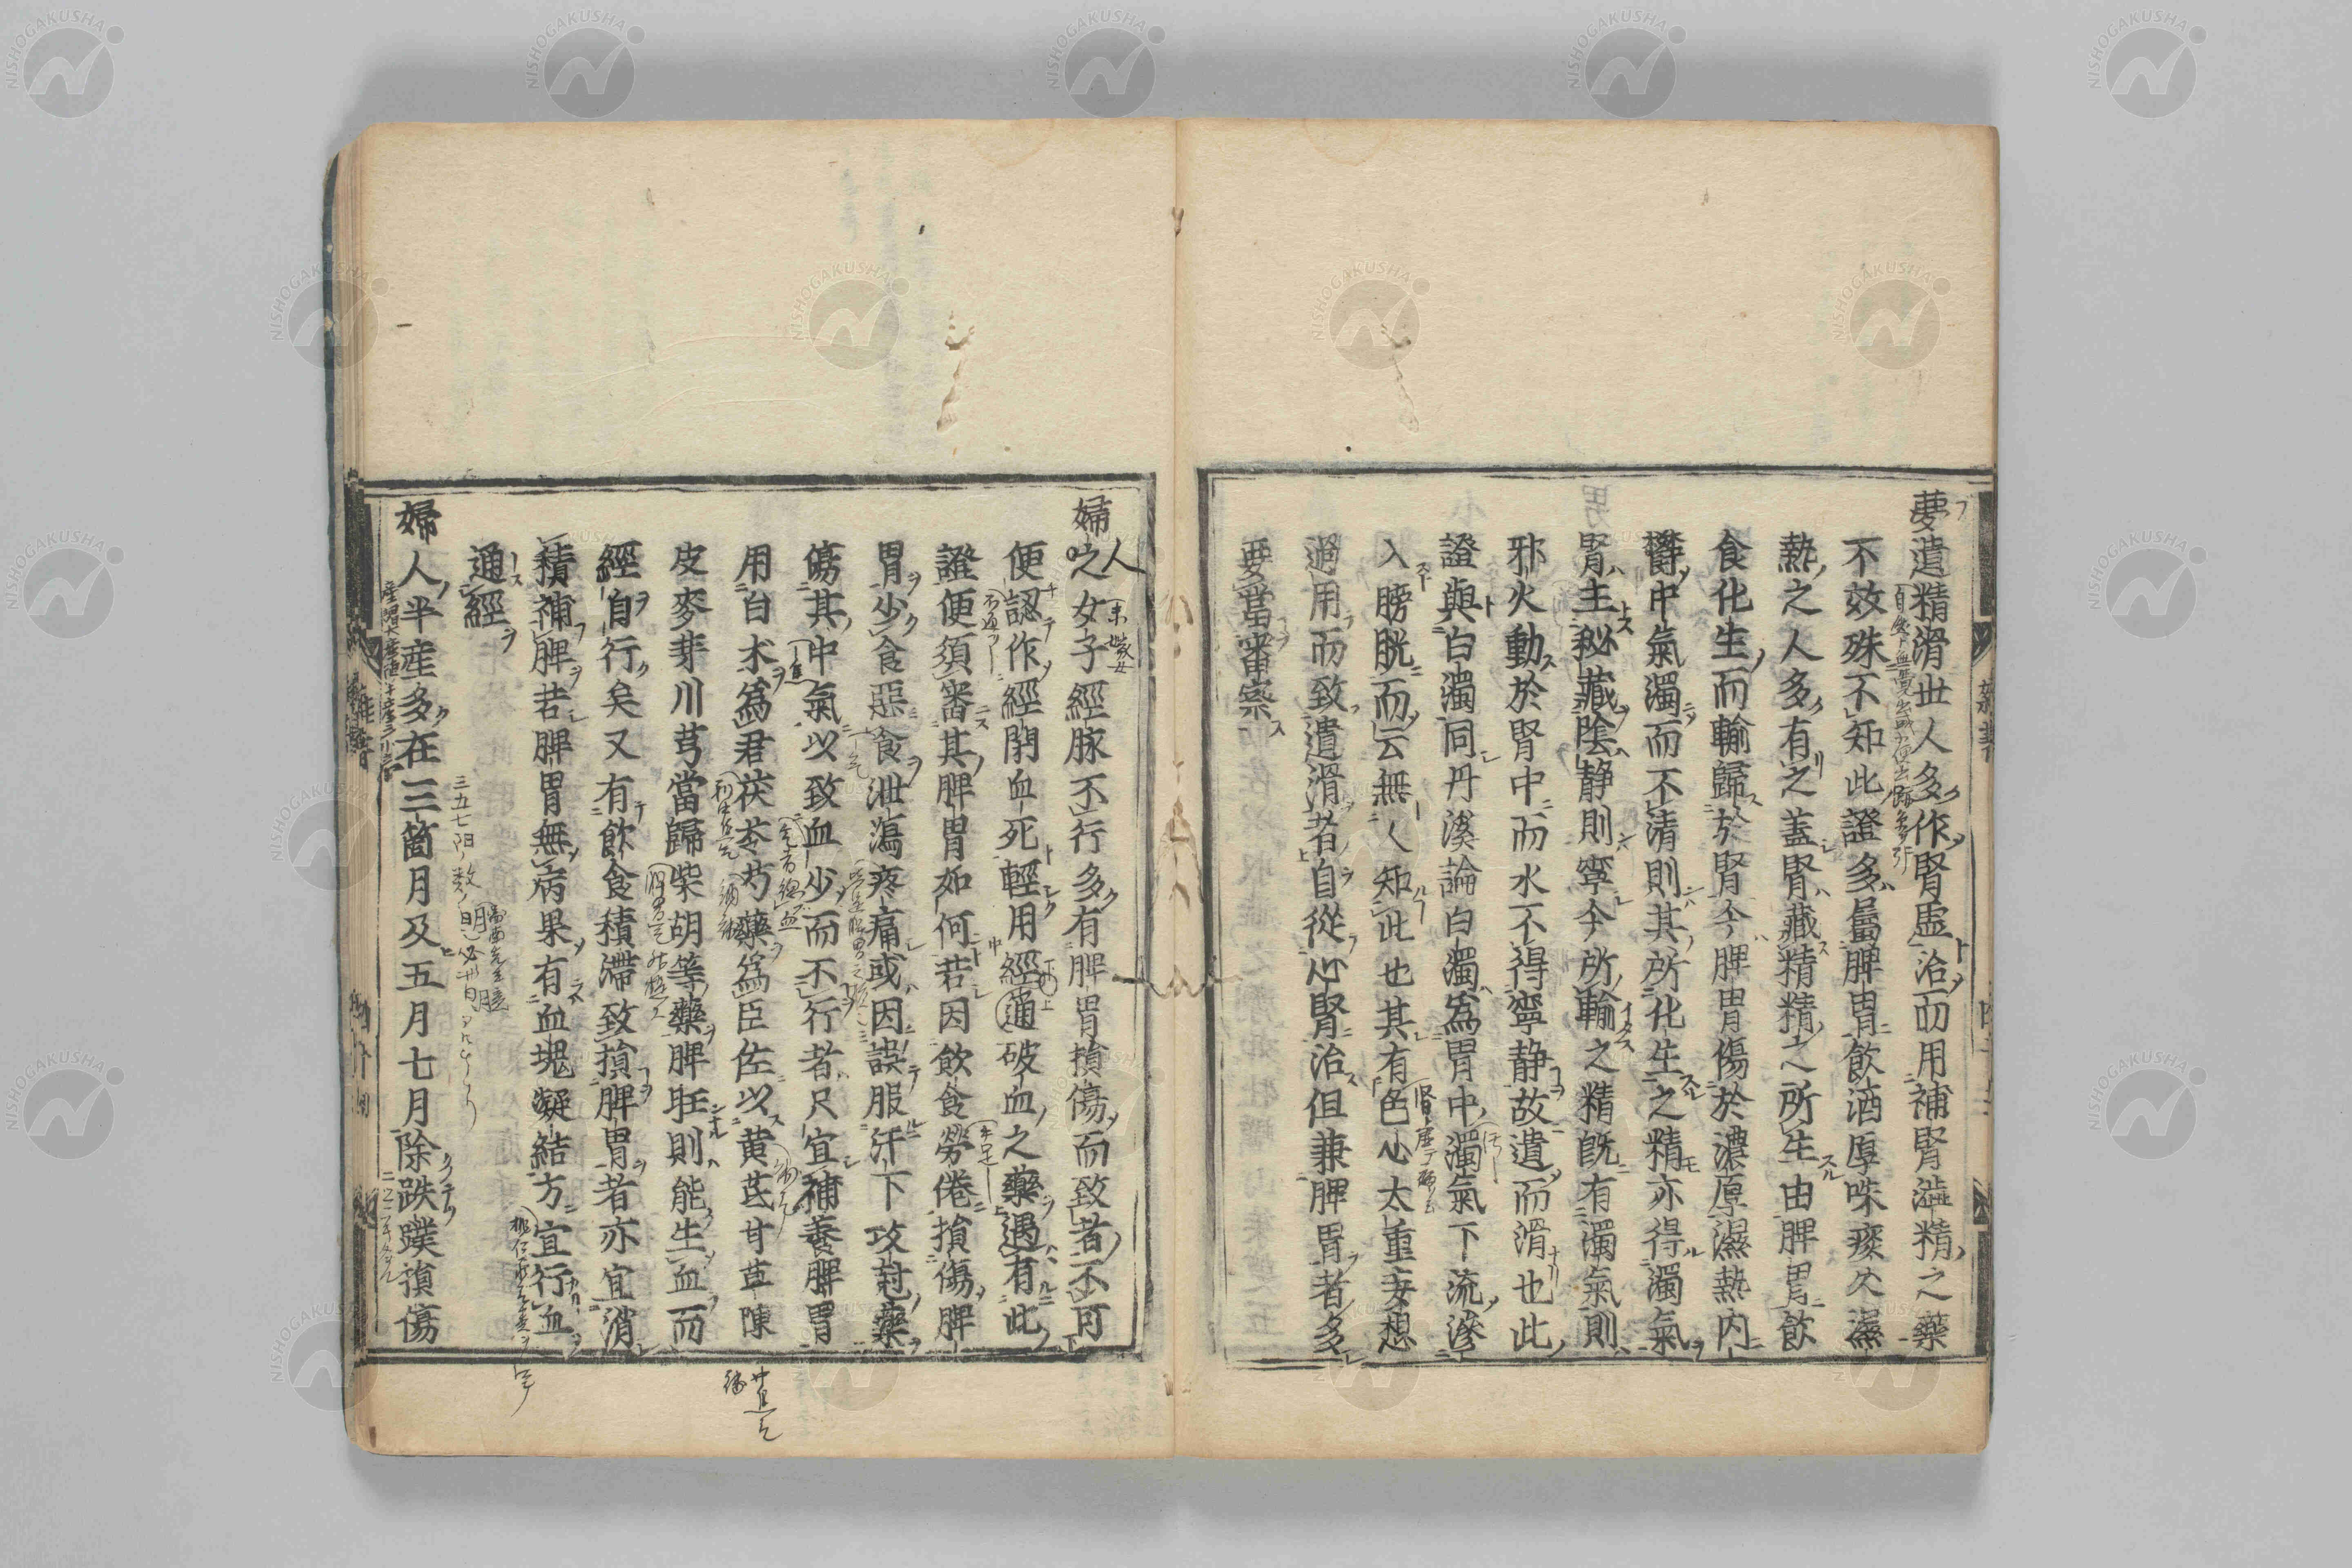 夢遺精滑世人多作腎虛治而用補腎澁精之藥
不效殊不知此證多屬脾胃飲酒厚味痰火濕
熱之人多有之蓋腎藏精精之所生由脾胃飲
食化生而輸歸於腎今脾胃傷於濃厚濕熱内
欝中氣濁而不清則其所化生之精亦得濁氣
腎主秘藏陰静則寧今所輸之精既有濁氣則
邪火動於腎中而水不得寧静故遺而滑也此
證與白濁同丹溪論白濁為胃中濁氣下流滲
入膀胱而云無人知此也其有色心太重妄想
過用而致遺滑者自從心腎治但兼脾胃者多
要當審察
婦人女子經脉不行多有脾胃損傷而致者不可
便認作經閉血死輕用經通破血之藥遇有此
證便須審其脾胃如何若因飲食勞倦損傷脾
胃少食惡食泄瀉疼痛或因誤服汗下攻尅藥
傷其中氣以致血少而不行者只宜補養脾胃
用白朮為君茯苓芍藥為臣佐以黄芪甘草陳
皮麥芽川芎當歸柴胡等藥脾旺則能生血而
經自行矣又有飲食積滯致損脾胃者亦宜消
積補脾若脾胃無病果有血塊凝結方宜行血
通經
婦人半産多在三箇月及五月七月除跌蹼損傷